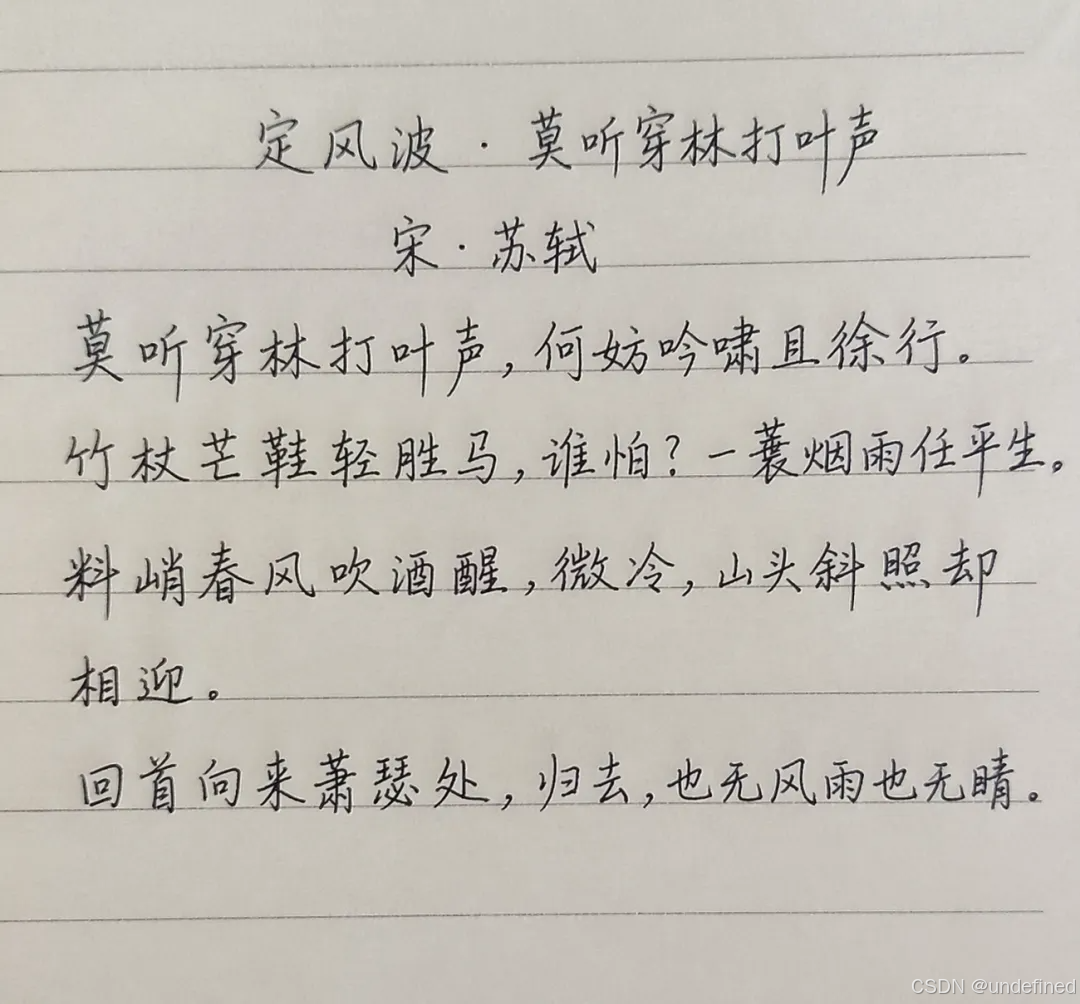 定风波·莫听穿林打叶声
宋·苏轼
莫听穿林打叶声，何妨吟啸且徐行。
竹杖芒鞋轻胜马，谁怕？一蓑烟雨任平生。
料峭春风吹酒醒，微冷，山头斜照却
相迎。
回首向来萧瑟处，归去，也无风雨也无晴。
CSDN @undefined